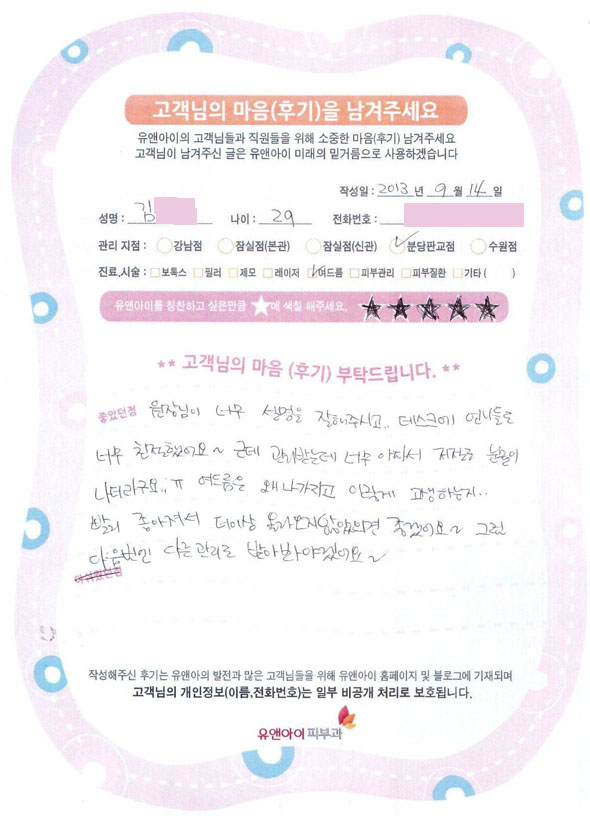 고객님의 마음(후기)을 남겨주세요
유앤아이의 고객님들과 직원들을 위해 소중한 마음(후기) 남겨주세요
고객님이 남겨주신 글은 유앤아이 미래의 밑거름으로 사용하겠습니다
작성일 : 2013 년 9 월 14 일
성명 : 김 나이 : 29 전화번호 :
관리 지점 : 강남점 잠실점(본관) 잠실점(신관) 분당판교점 수원점
진료,시술 : 보톡스 필러 제모 레이저 여드름 피부관리 피부질환 기타 ( )
유앤아이를 칭찬하고 싶은만큼 ★에 색칠 해주세요. ★★★★★
** 고객님의 마음 (후기) 부탁드립니다. **
좋았던점 원장님이 너무 설명을 잘해주시고.. 데스크에 언니들도
너무 친절했어요~ 근데 관리받는데 너무 아파서 저절로 눈물이
나더라구요;; ㅠ 여드름은 왜 나가지고 이렇게 고생하는지..
빨리 좋아져서 더이상 올라오지않았으면 좋겠어요~ 그럼
다음번엔 다른 관리로 받아봐야겠어요~
아쉬웠던점
작성해주신 후기는 유앤아의 발전과 많은 고객님들을 위해 유앤아이 홈페이지 및 블로그에 기재되며
고객님의 개인정보(이름,전화번호)는 일부 비공개 처리로 보호됩니다.
유앤아이 피부과